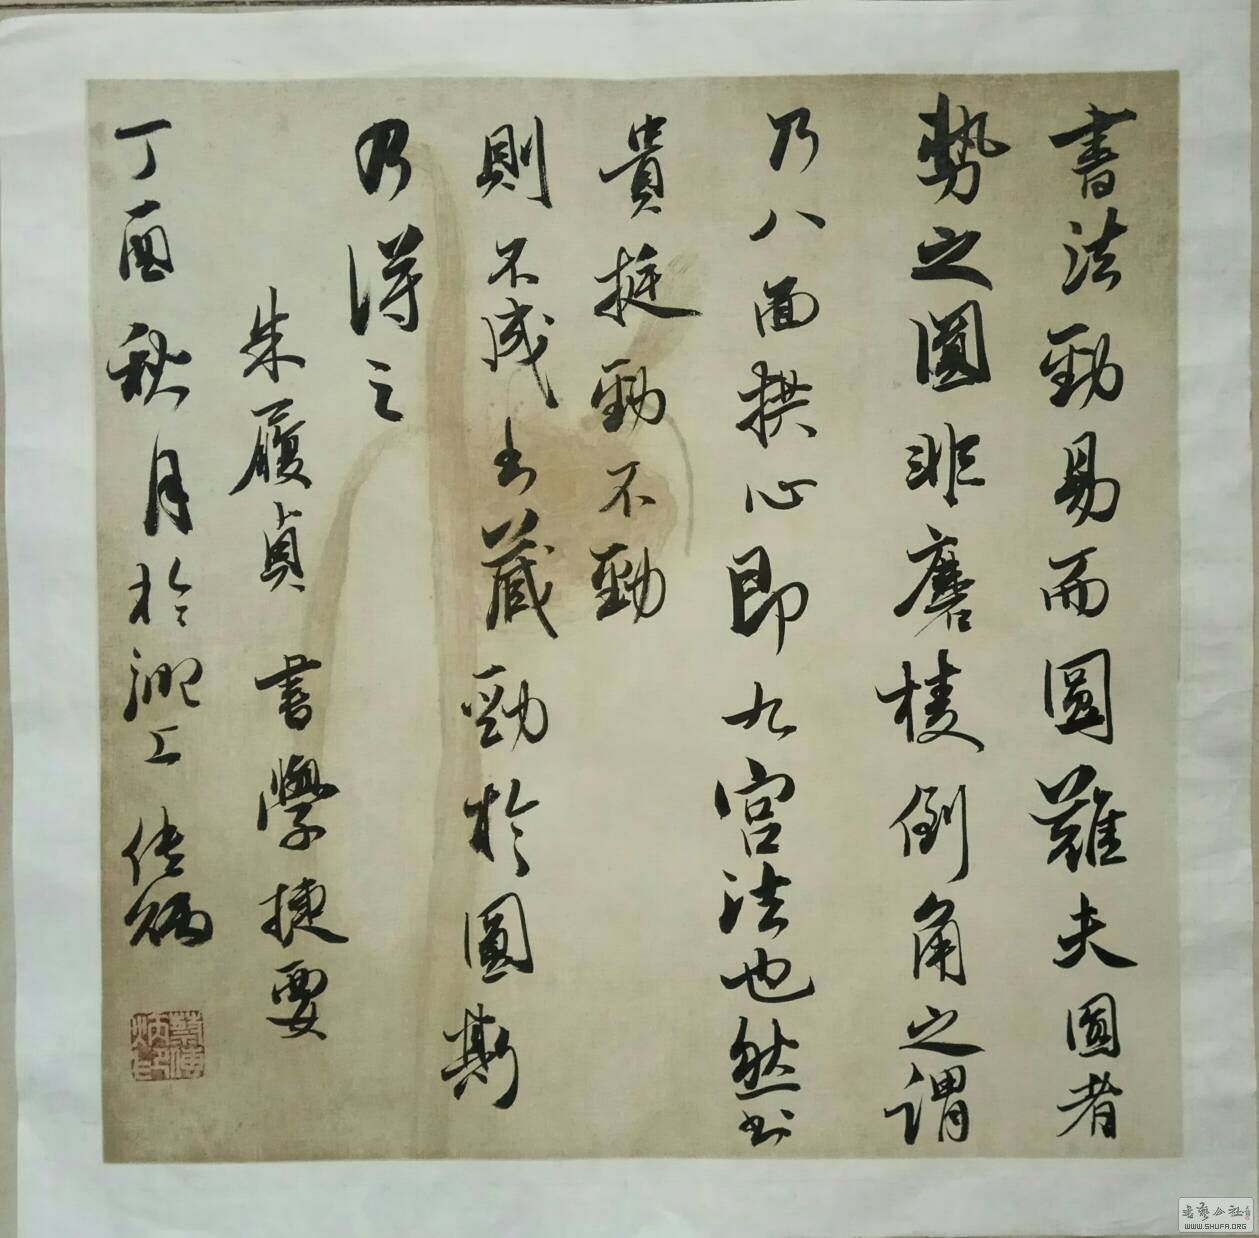 書法勁易而圓難夫圓者
勢之圓非磨棱倒角之謂
乃八面拱心即九宮法也然書
貴挺勁不勁
則不成書藏勁於圓斯
乃得之
朱履貞 書學捷要
丁酉秋月於浙江 傳炳
書藝公社
WWW.SHUFA.ORG